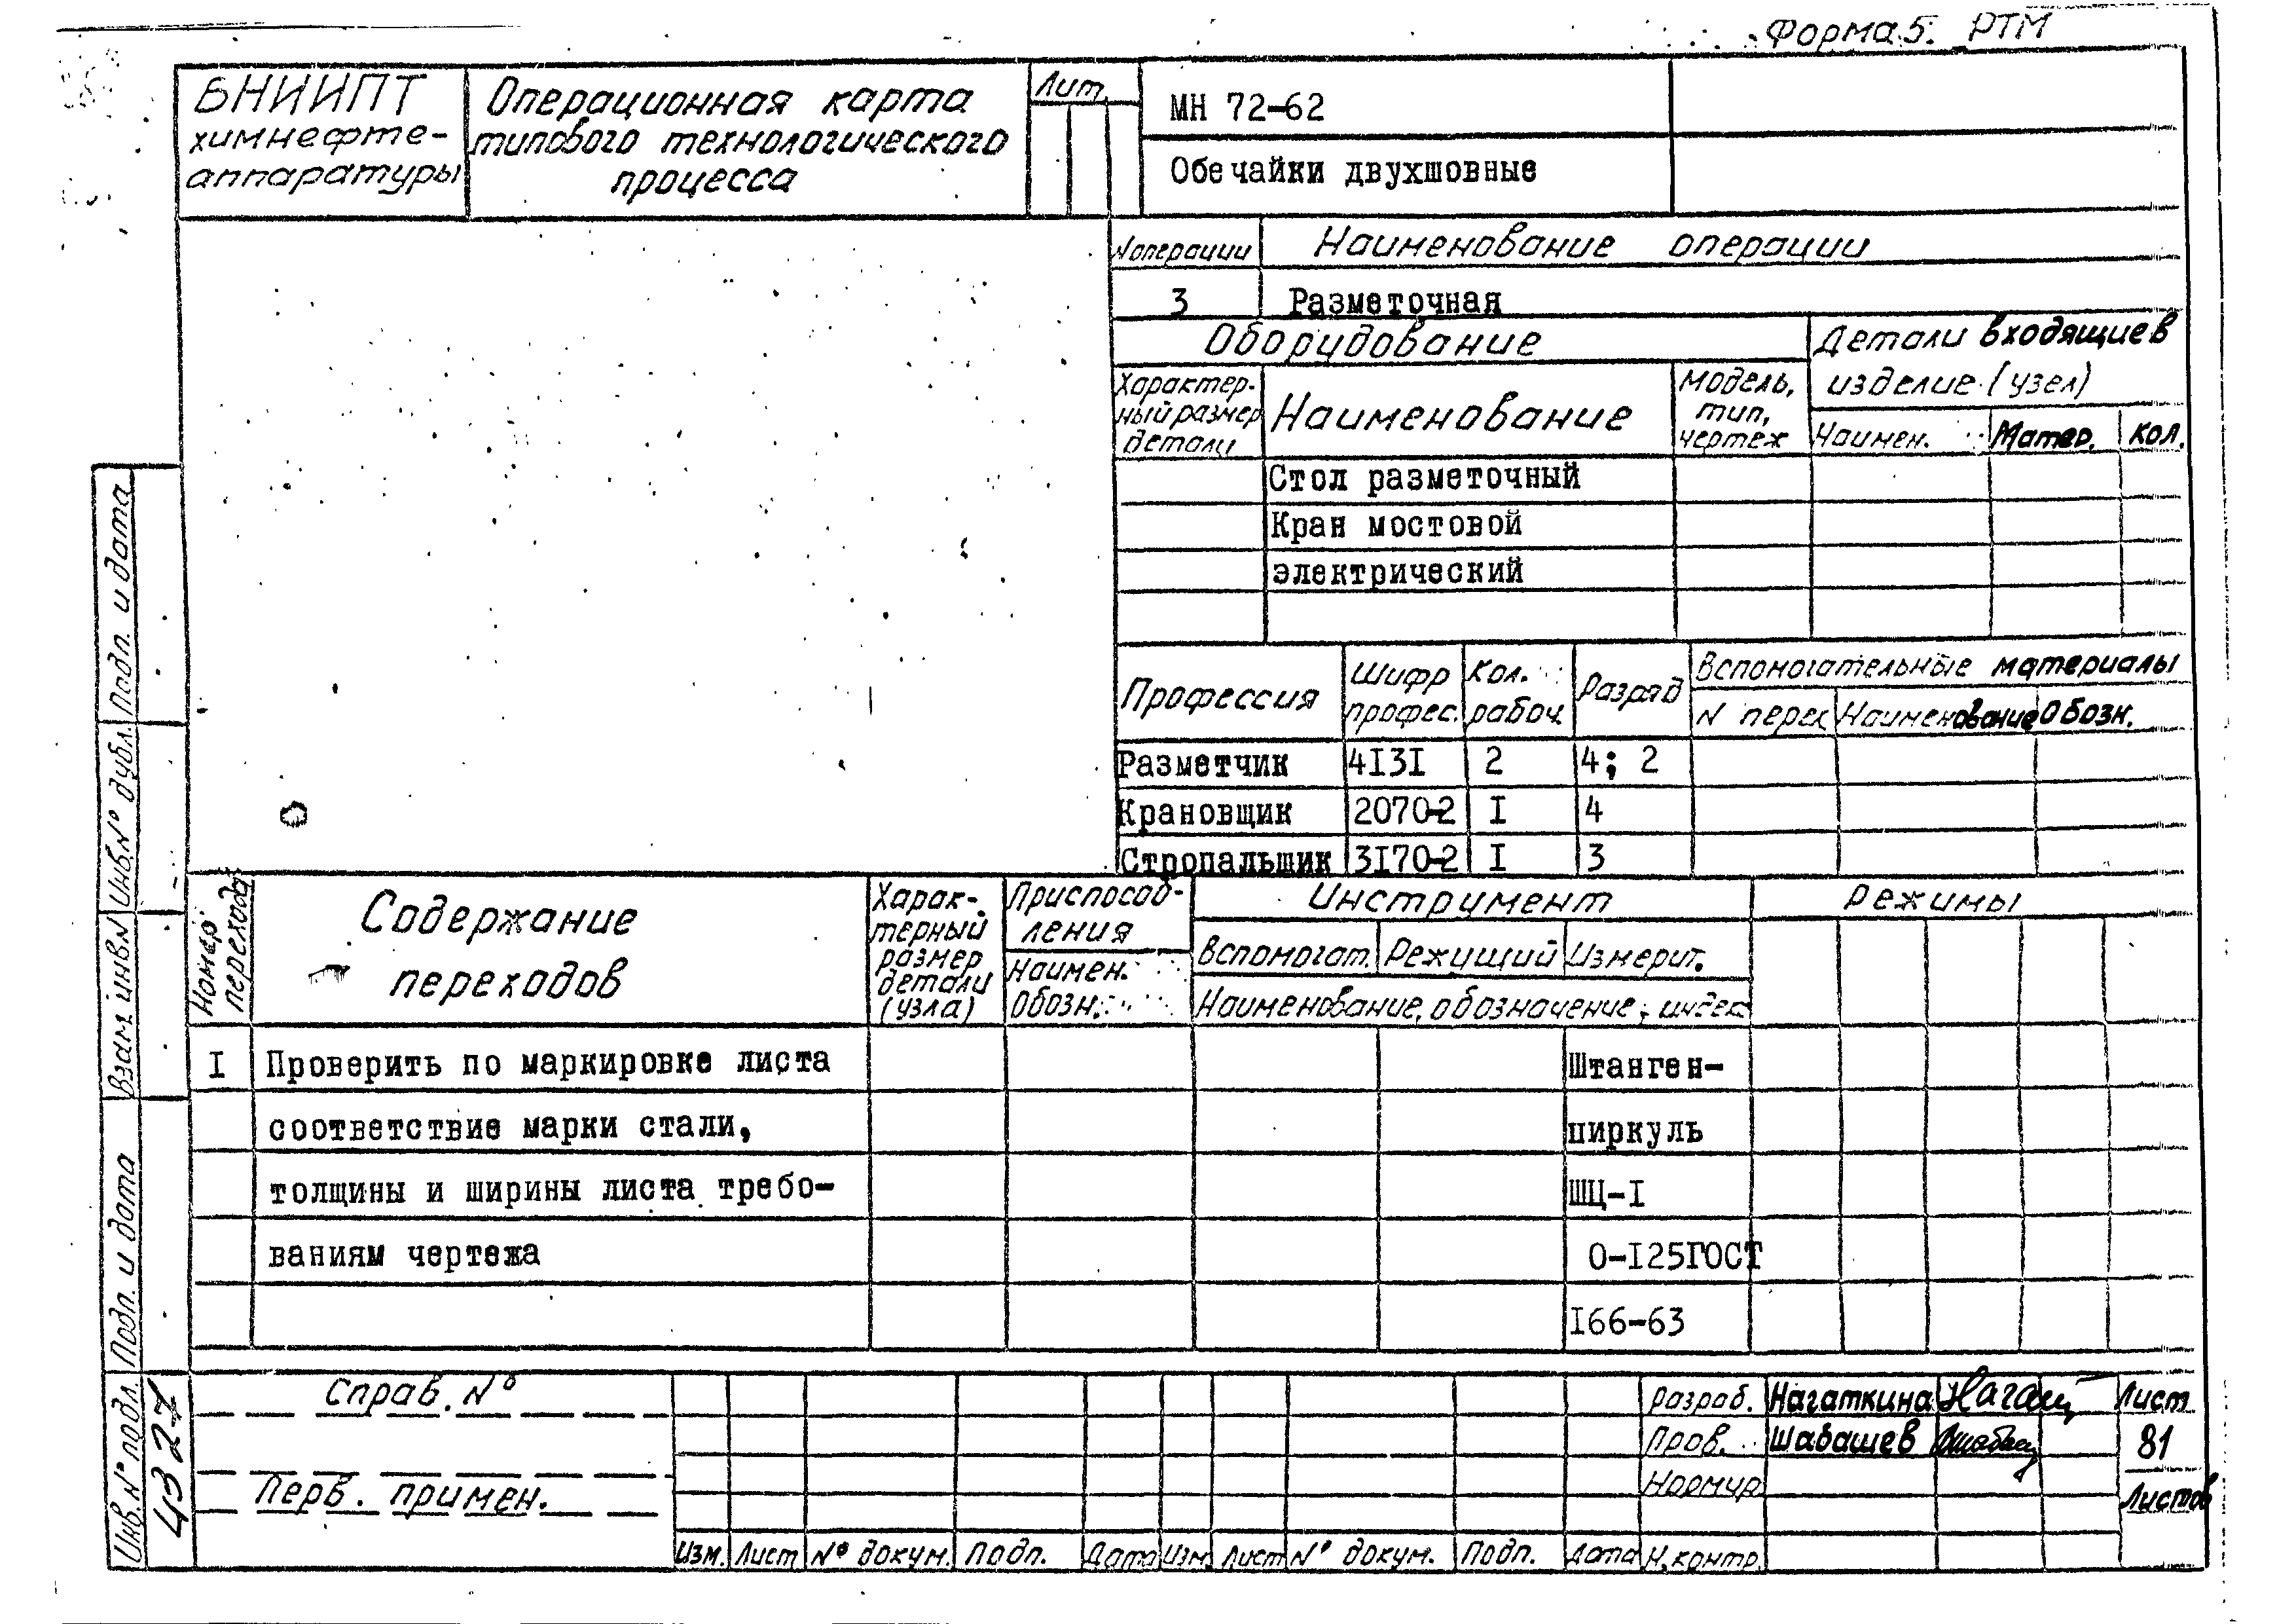 Форма 5. РТМ
ВНИИПТ
химнефте-
аппаратуры
Операционная карта
типового технологического
процесса
Лит.
МН 72-62
Обечайки двухшовные
N операции
Наименование операции
3
Разметочная
Оборудование
Детали входящие в
изделие (узел)
Характер-
ный размер
детали
Наименование
Модель,
тип,
чертеж
Наимен.
Матер.
кол.
Стол разметочный
Кран мостовой
электрический
Профессия
Шифр
профес.
Кол.
рабоч.
Разряд
Вспомогательные материалы
N перех
Наименование
Обозн.
Разметчик 4I3I 2 4; 2
Крановщик 2070-2 I 4
Стропальшик 3I70-2 I 3
Номер
перехода
Содержание
переходов
Харак-
терный
размер
детали
(узла)
Приспособ-
ления
Наимен.
Обозн.
Инструмент
Вспомогат.
Режущий
Измерит.
Наименование, обозначение, индек
Режимы
I Проверить по маркировке листа Штанген-
соответствие марки стали, циркуль
толщины и ширины листа требо- ШЦ-I
ваниям чертежа 0-I25ГОСТ
I66-63
Подп. и дата
Инв. N° дубл.
Взам инв. N
Подп. и дата
Инв. N° подл.
4327
Справ. N°
Перв. примен.
Изм. Лист N° докум. Подп. Дата Изм. Лист N° докум. Подп. Дата
Разраб. Нагаткина Нагат
Пров. Шабашев
Нормир
Н. контр.
Лист
81
Листов